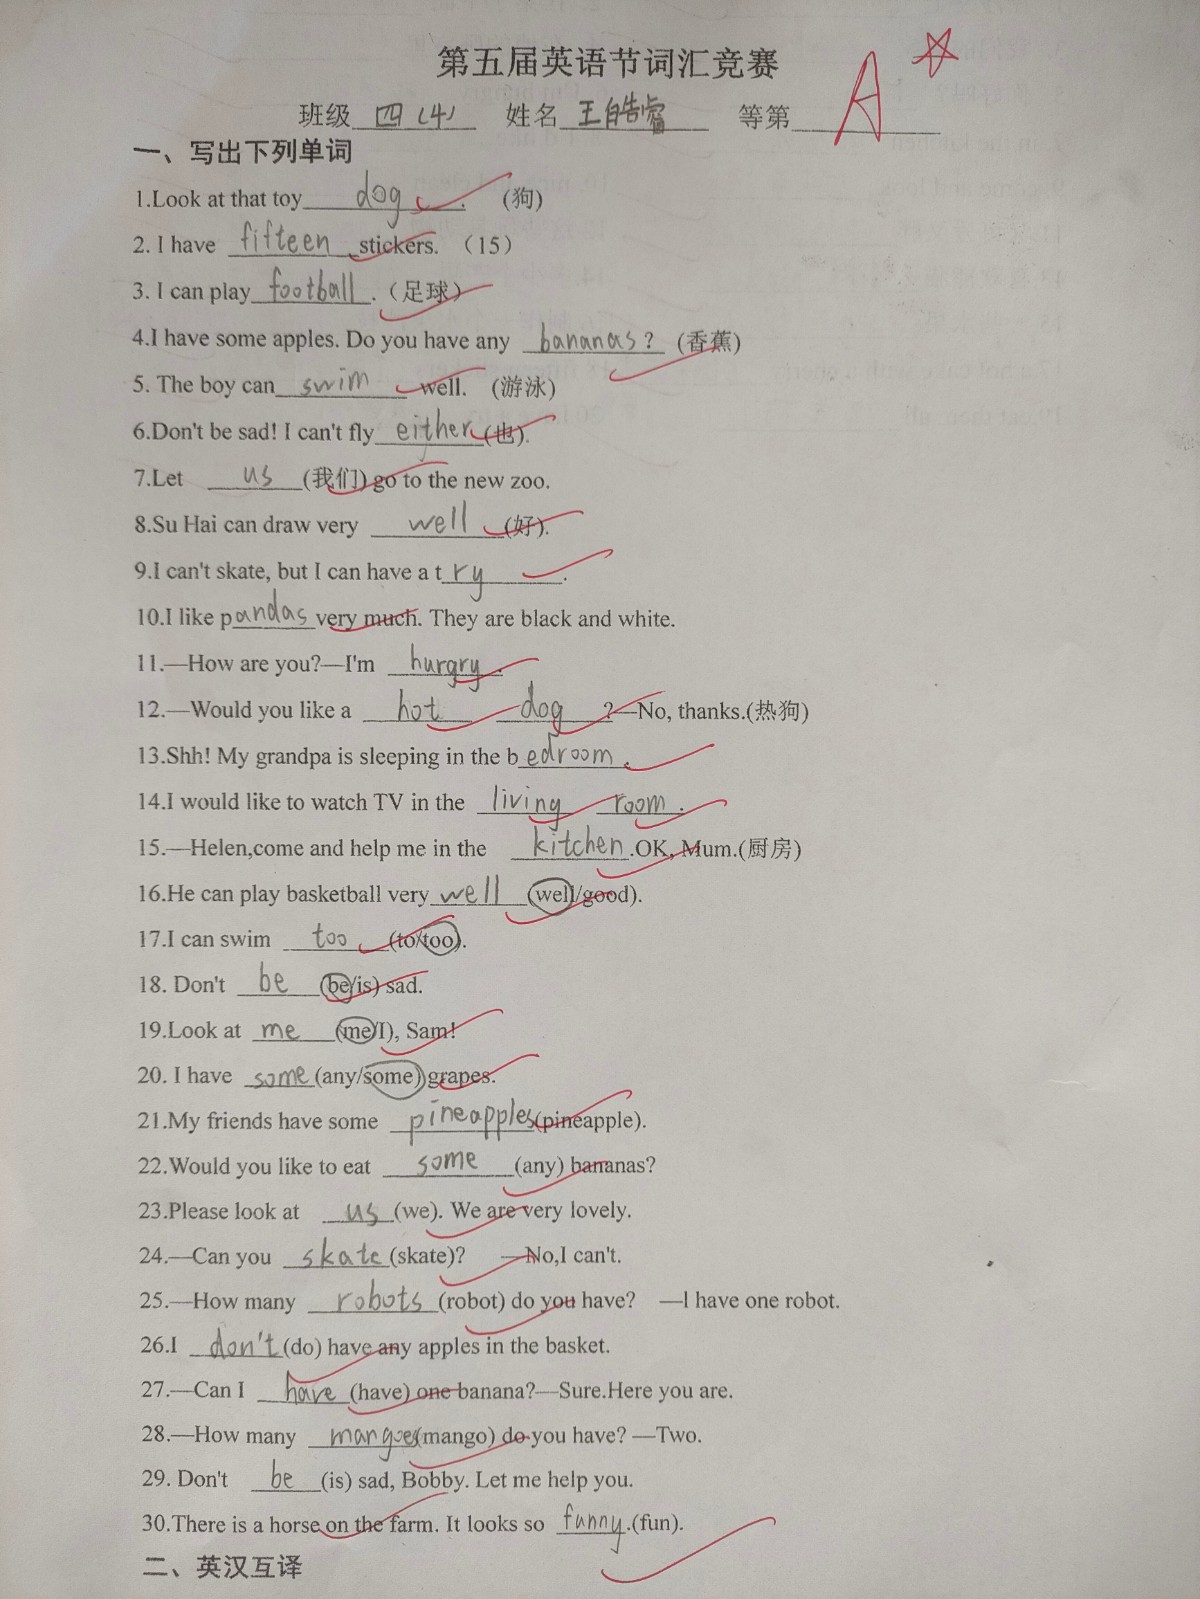 第五届英语节词汇竞赛
班级 四(4) 姓名 王皓睿 等第 A
一、写出下列单词
1.Look at that toy dog. (狗)
2. I have fifteen stickers.（15）
3. I can play football.（足球）
4.I have some apples. Do you have any bananas? (香蕉)
5. The boy can swim well. (游泳)
6.Don't be sad! I can't fly either(也).
7.Let us (我们) go to the new zoo.
8.Su Hai can draw very well (好).
9.I can't skate, but I can have a try.
10.I like pandas very much. They are black and white.
11.—How are you?—I'm hurgry.
12.—Would you like a hot dog?—No, thanks.(热狗)
13.Shh! My grandpa is sleeping in the bedroom.
14.I would like to watch TV in the living room.
15.—Helen,come and help me in the kitchen.OK, Mum.(厨房)
16.He can play basketball very well (well/good).
17.I can swim too (to/too).
18. Don't be (be/is) sad.
19.Look at me (me/I), Sam!
20. I have some(any/some) grapes.
21.My friends have some pineapples(pineapple).
22.Would you like to eat some (any) bananas?
23.Please look at us(we). We are very lovely.
24.—Can you skate(skate)? —No,I can't.
25.—How many robots (robot) do you have? —I have one robot.
26.I don't(do) have any apples in the basket.
27.—Can I have (have) one banana?—Sure.Here you are.
28.—How many mangoes(mango) do you have? —Two.
29. Don't be (is) sad, Bobby. Let me help you.
30.There is a horse on the farm. It looks so funny.(fun).
二、英汉互译